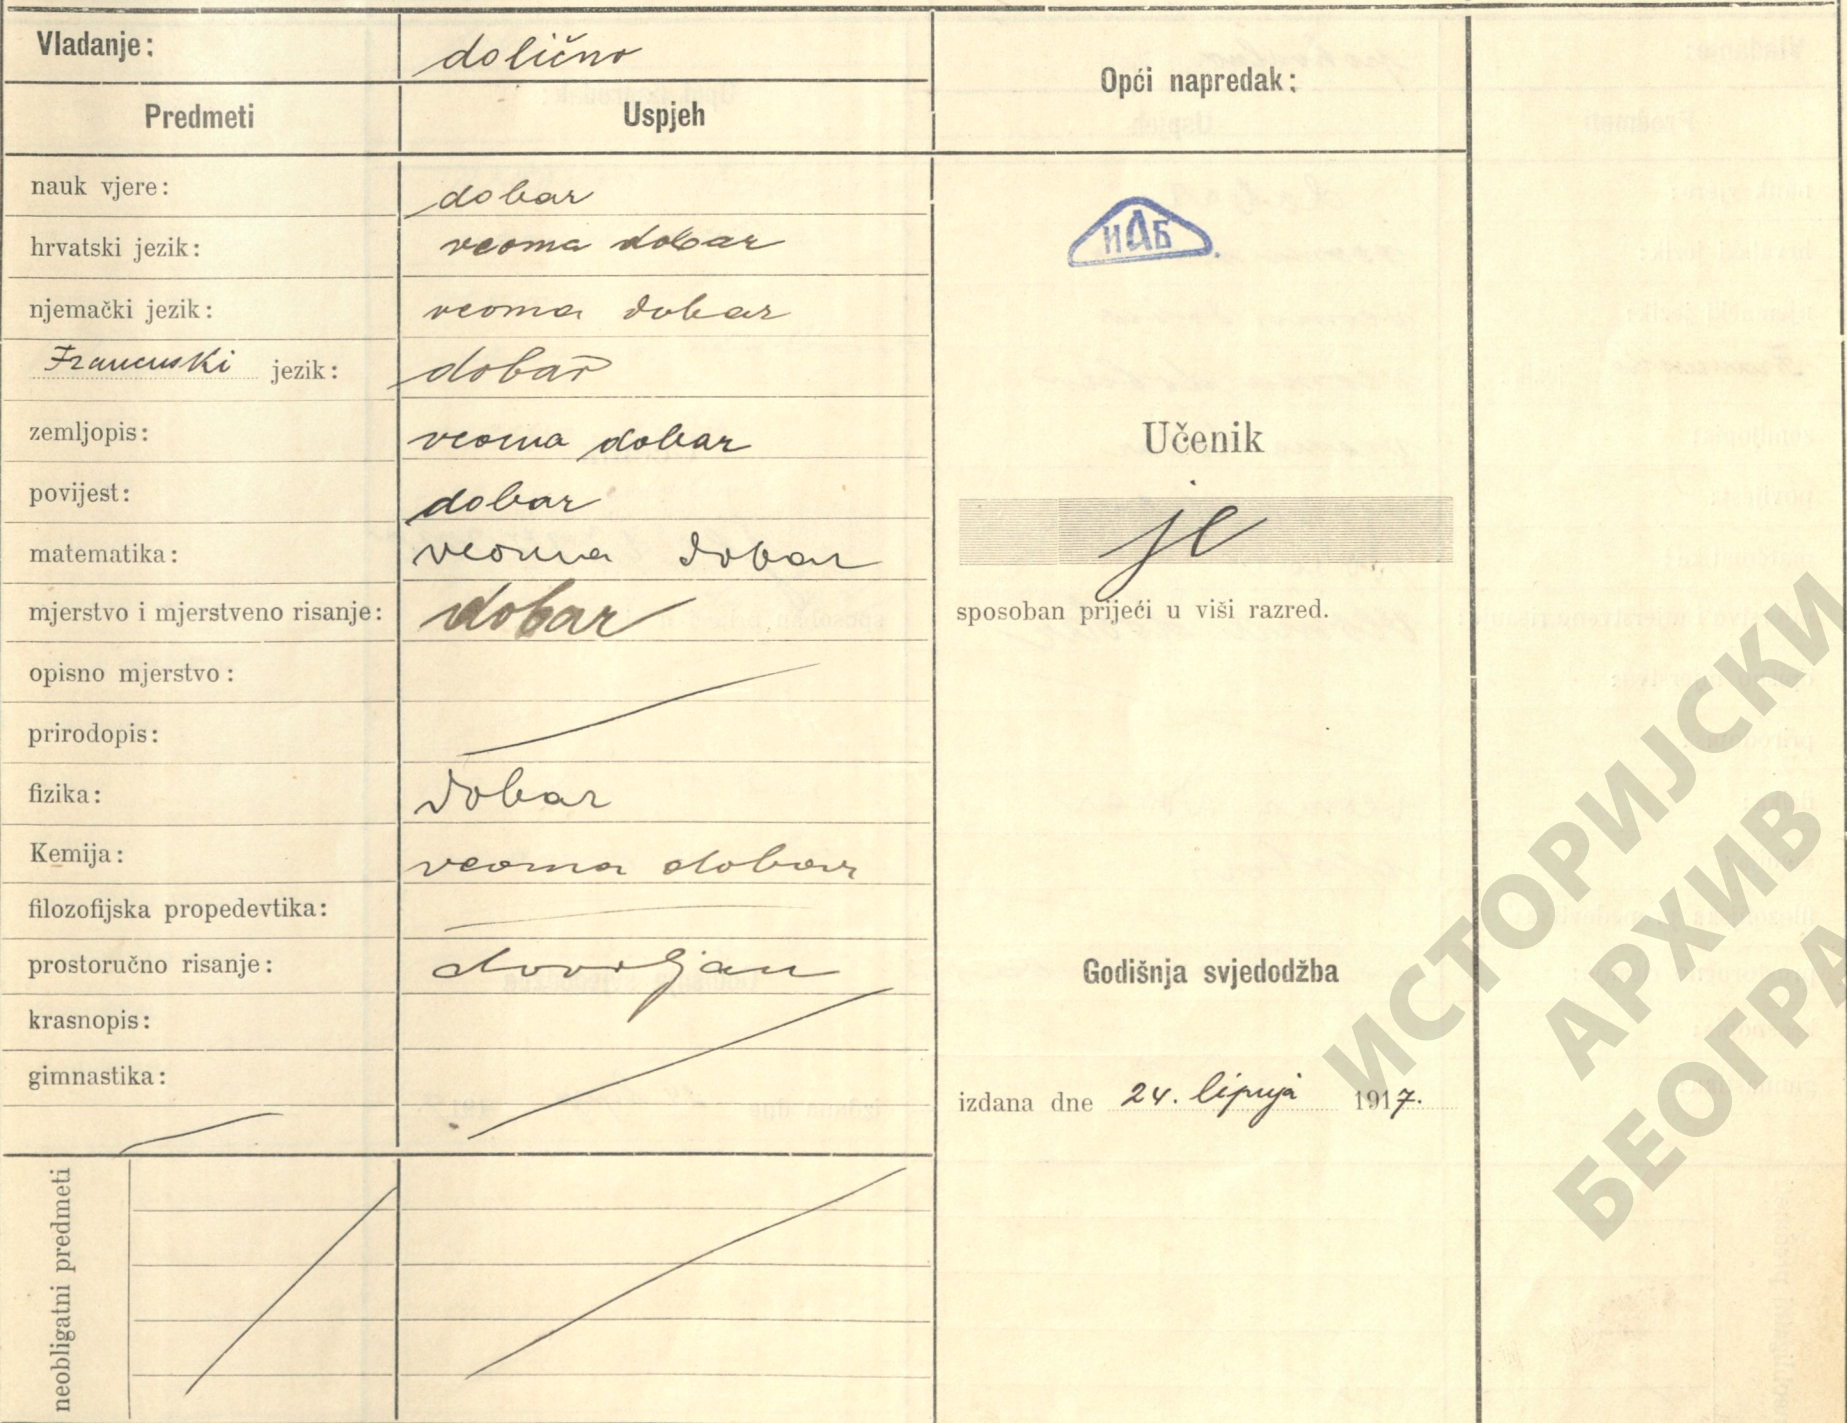 Vladanje: dolično
Opći napredak:
Predmeti Uspjeh
nauk vjere: dobar
hrvatski jezik: veoma dobar
njemački jezik: veoma dobar
Francuski jezik: dobar
zemljopis: veoma dobar
povijest: dobar
matematika: veoma dobar
mjerstvo i mjerstveno risanje: dobar
opisno mjerstvo:
prirodopis:
fizika: dobar
Kemija: veoma dobar
filozofijska propedevtika:
prostoručno risanje: dovoljan
krasnopis:
gimnastika:
neobligatni predmeti
ИАБ
Učenik
je
sposoban prijeći u viši razred.
Godišnja svjedodžba
izdana dne 24. lipnja 1917.
ИСТОРИЈСКИ
АРХИВ
БЕОГРА